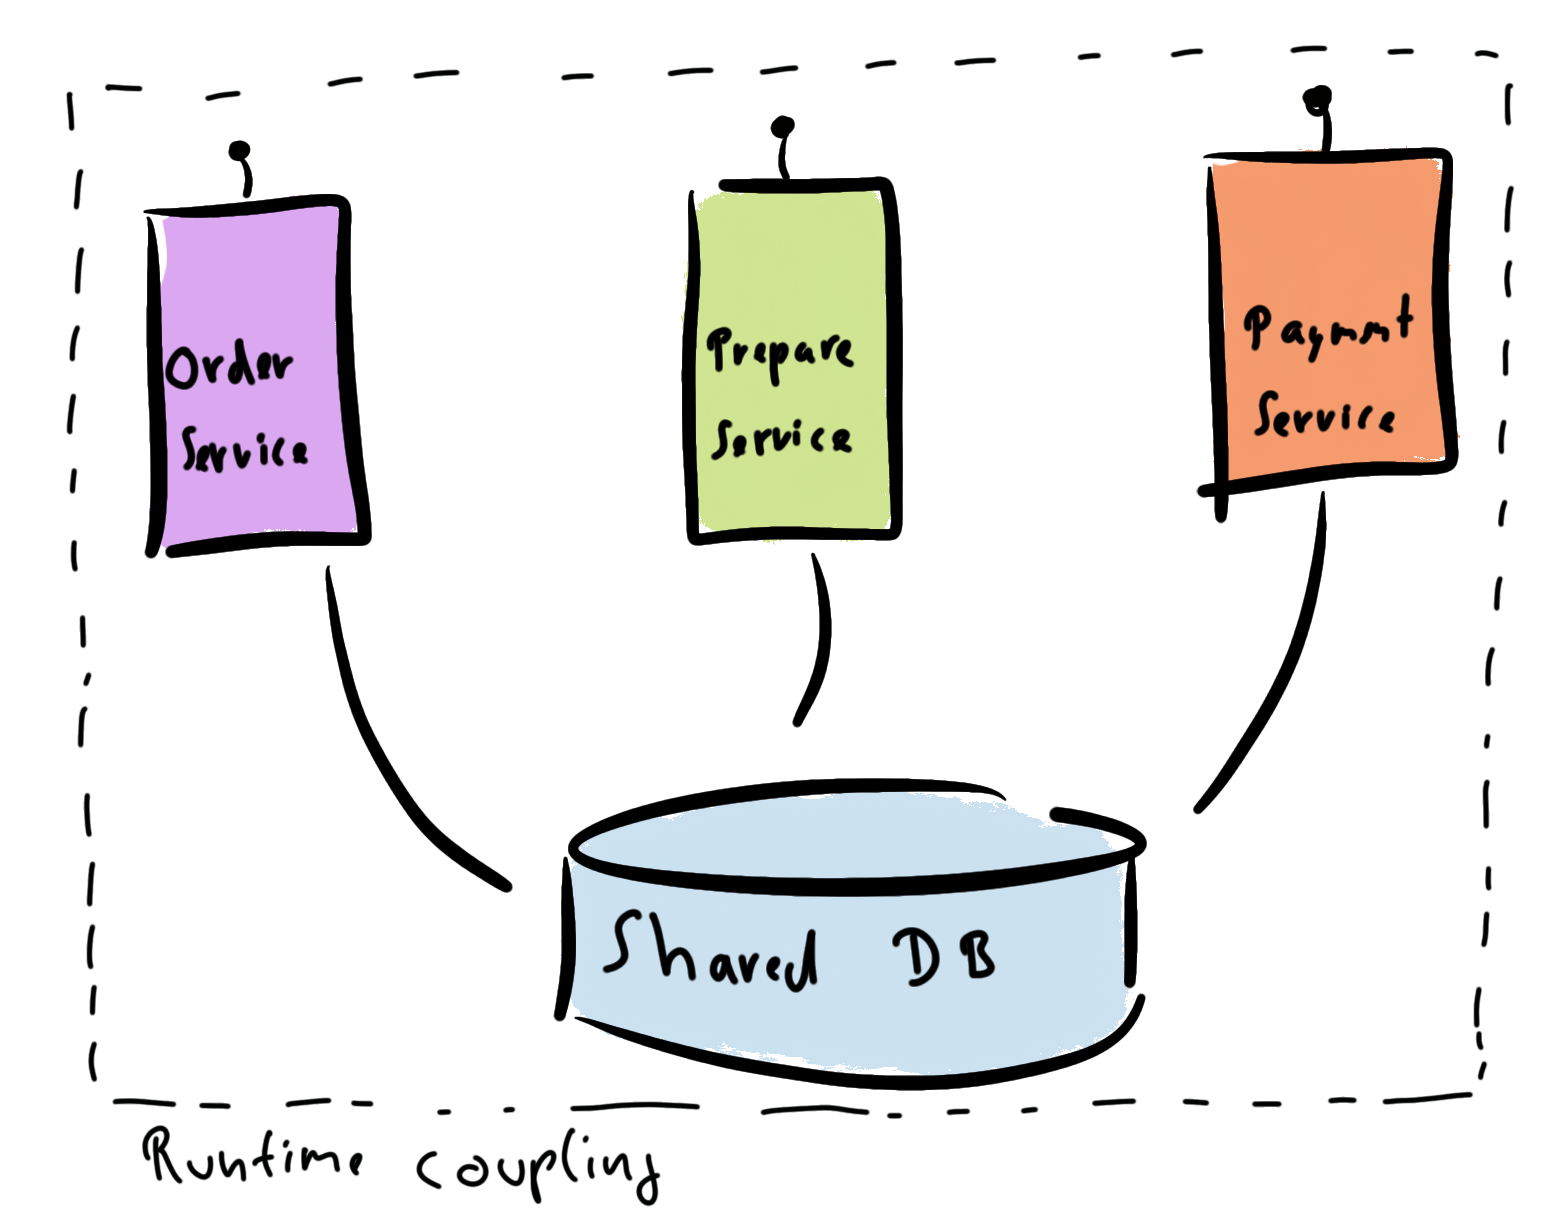 Order
Service
Prepare
Service
Paymnt
Service
Shared DB
Runtime coupling